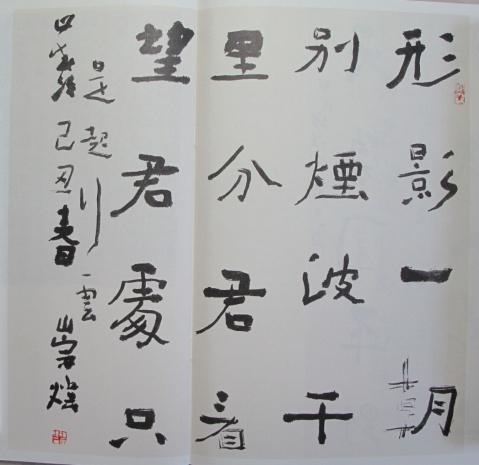 形影一朝
别煙波千
里分君看
望君處只
是起行雲
己丑春